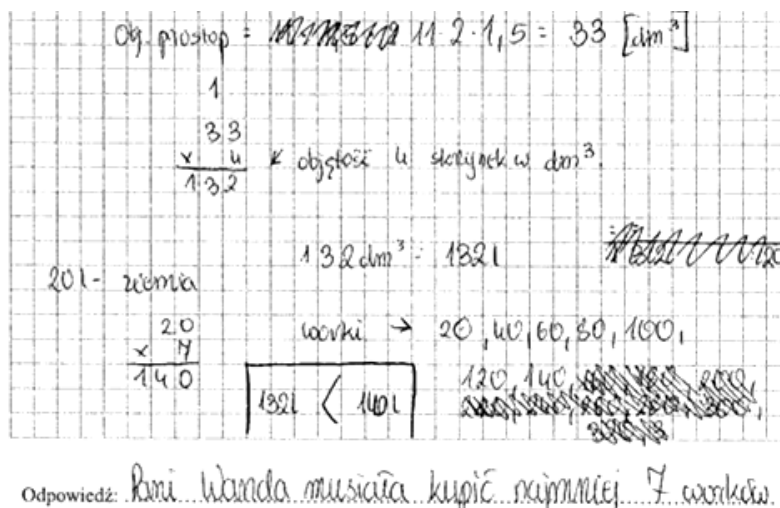 Obj. prostop = 11 · 2 · 1,5 = 33 [dm³]
1
33
x 4 ↙ objętość 4 skrzynek w dm³
132
132 dm³ = 132 l
20 l - ziemia
20 worki → 20, 40, 60, 80, 100,
x 7
140 120, 140,
132 l < 140 l
Odpowiedź: Pani Wanda musiała kupić najmniej 7 worków.